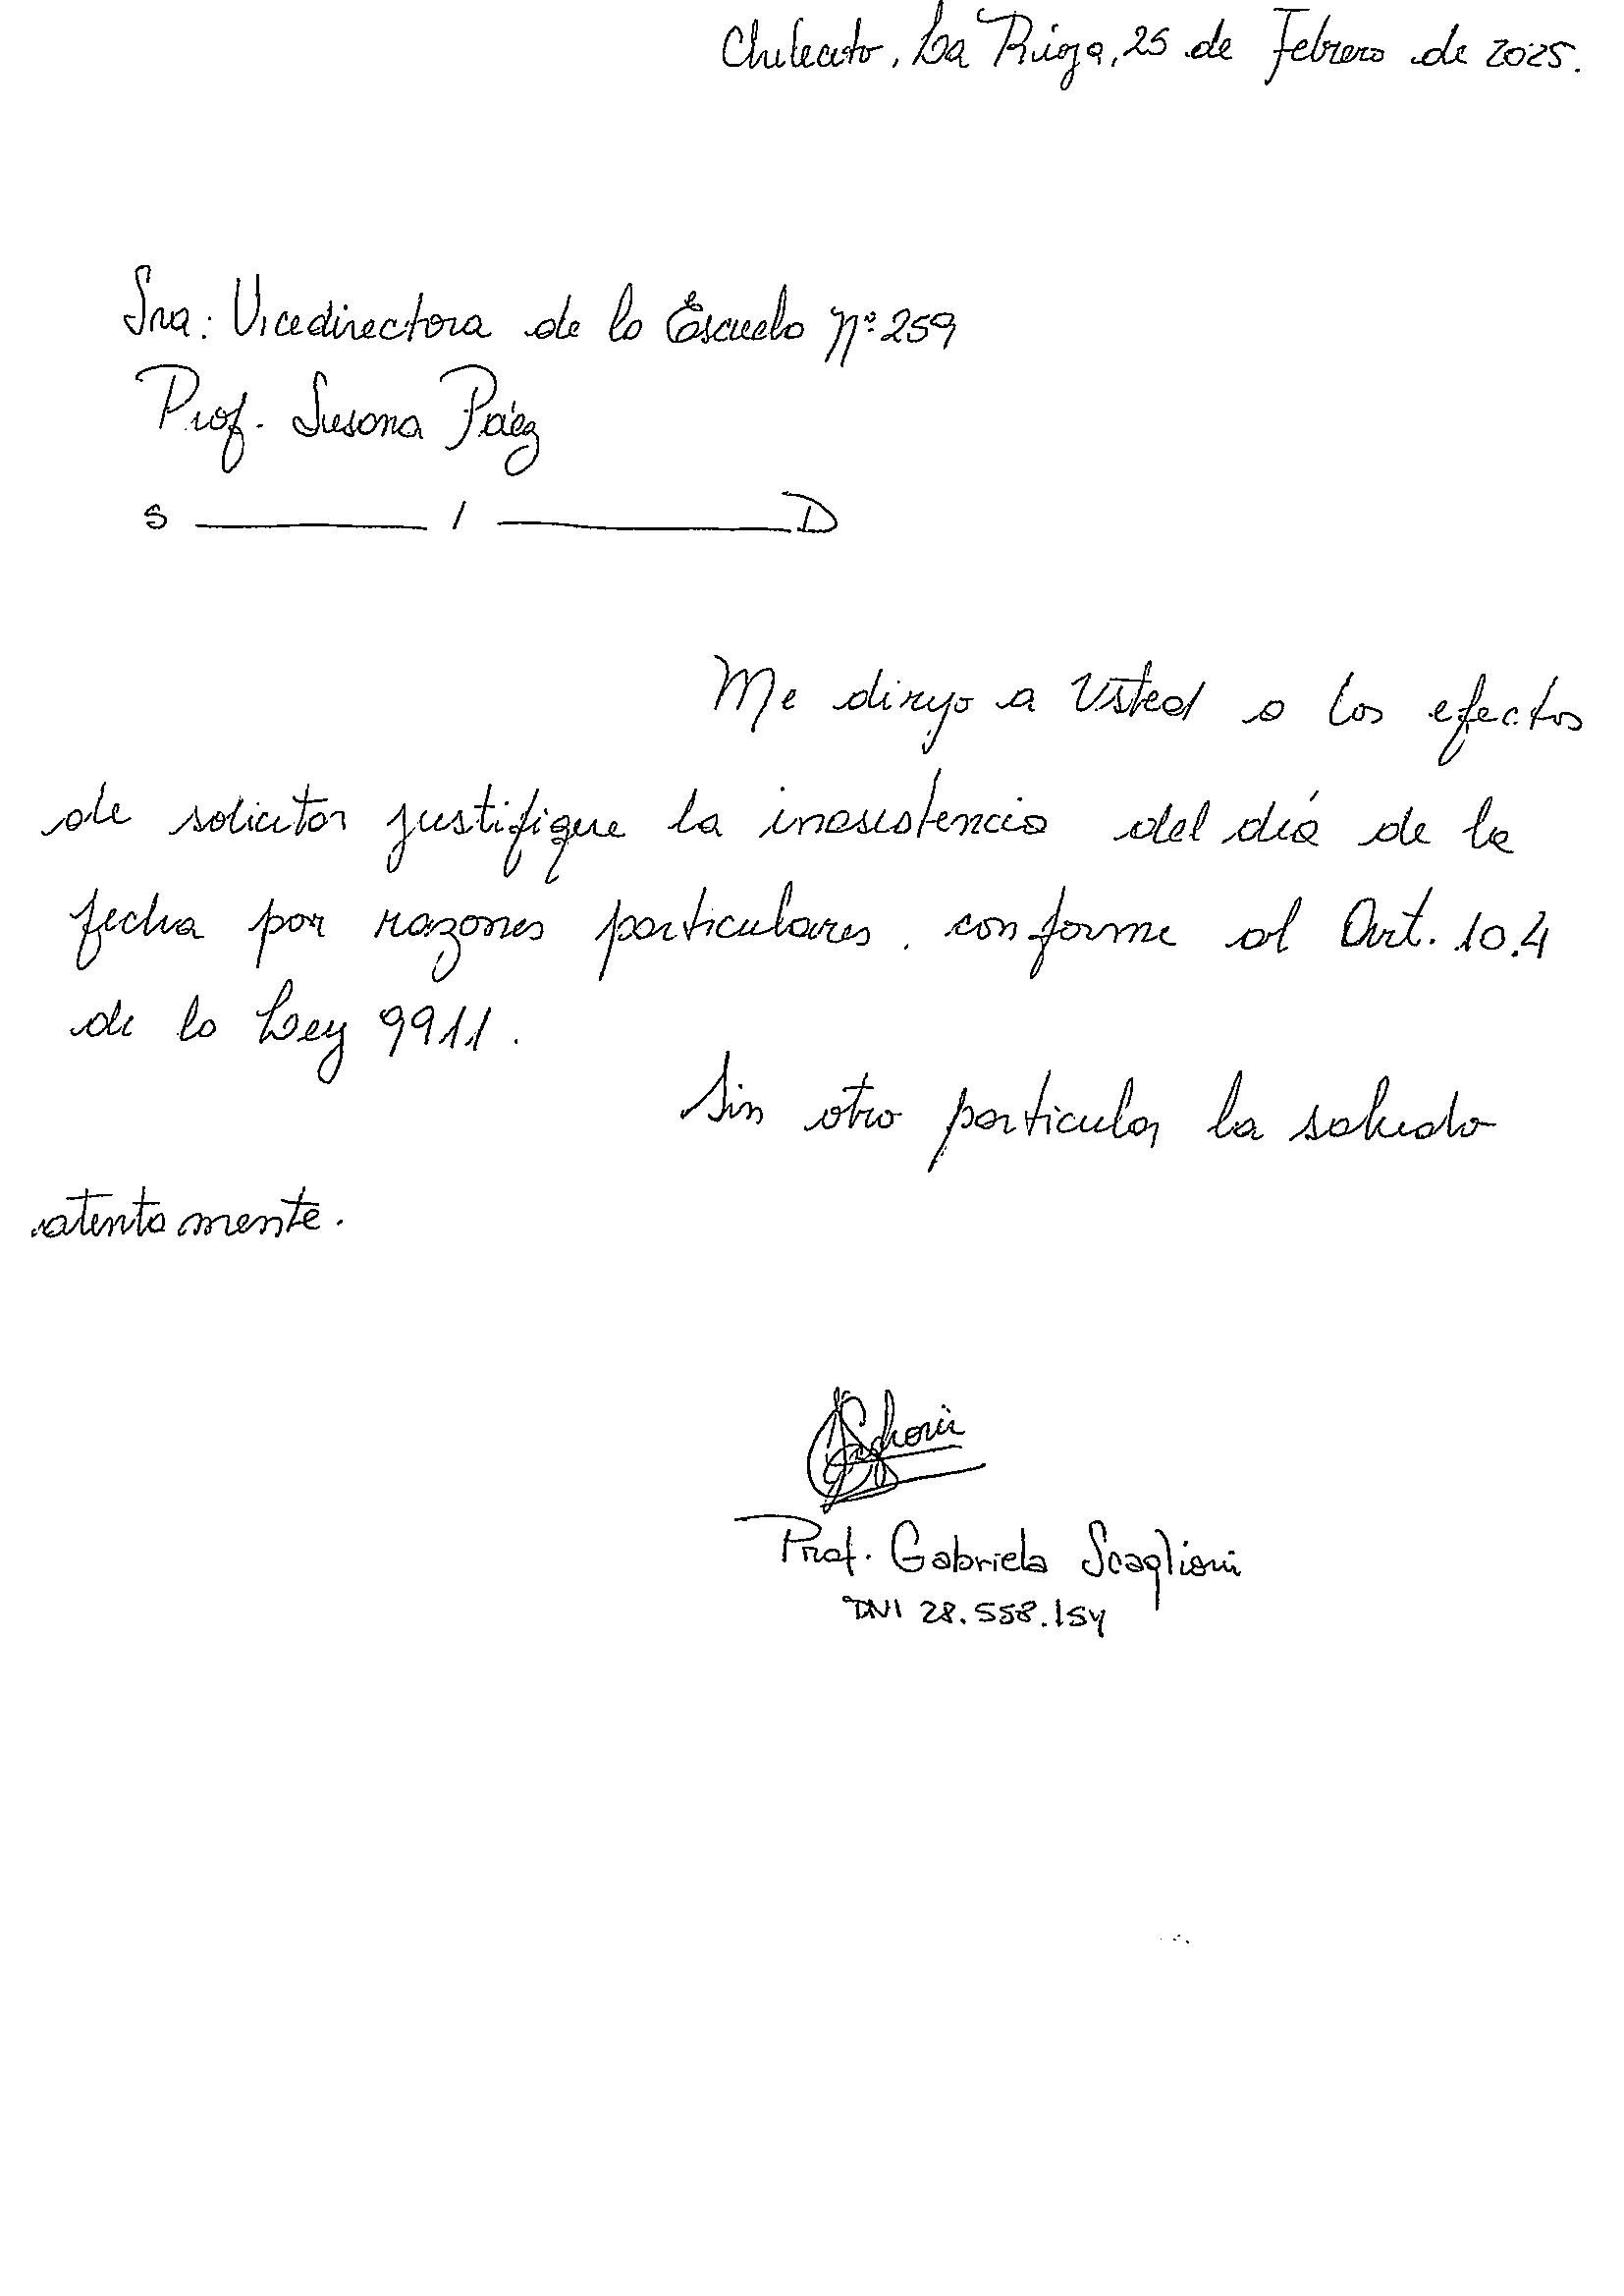 Chilecito, La Rioja, 25 de Febrero de 2025.
Sra: Vicedirectora de la Escuela Nº 259
Prof. Susana Páez
S / D
Me dirijo a Usted a los efectos
de solicitar justifique la inasistencia del día de la
fecha por razones particulares, conforme al Art. 10.4
de la Ley 9911.
Sin otro particular la saludo
atentamente.
Prof. Gabriela Scaglioni
DNI 28.558.154